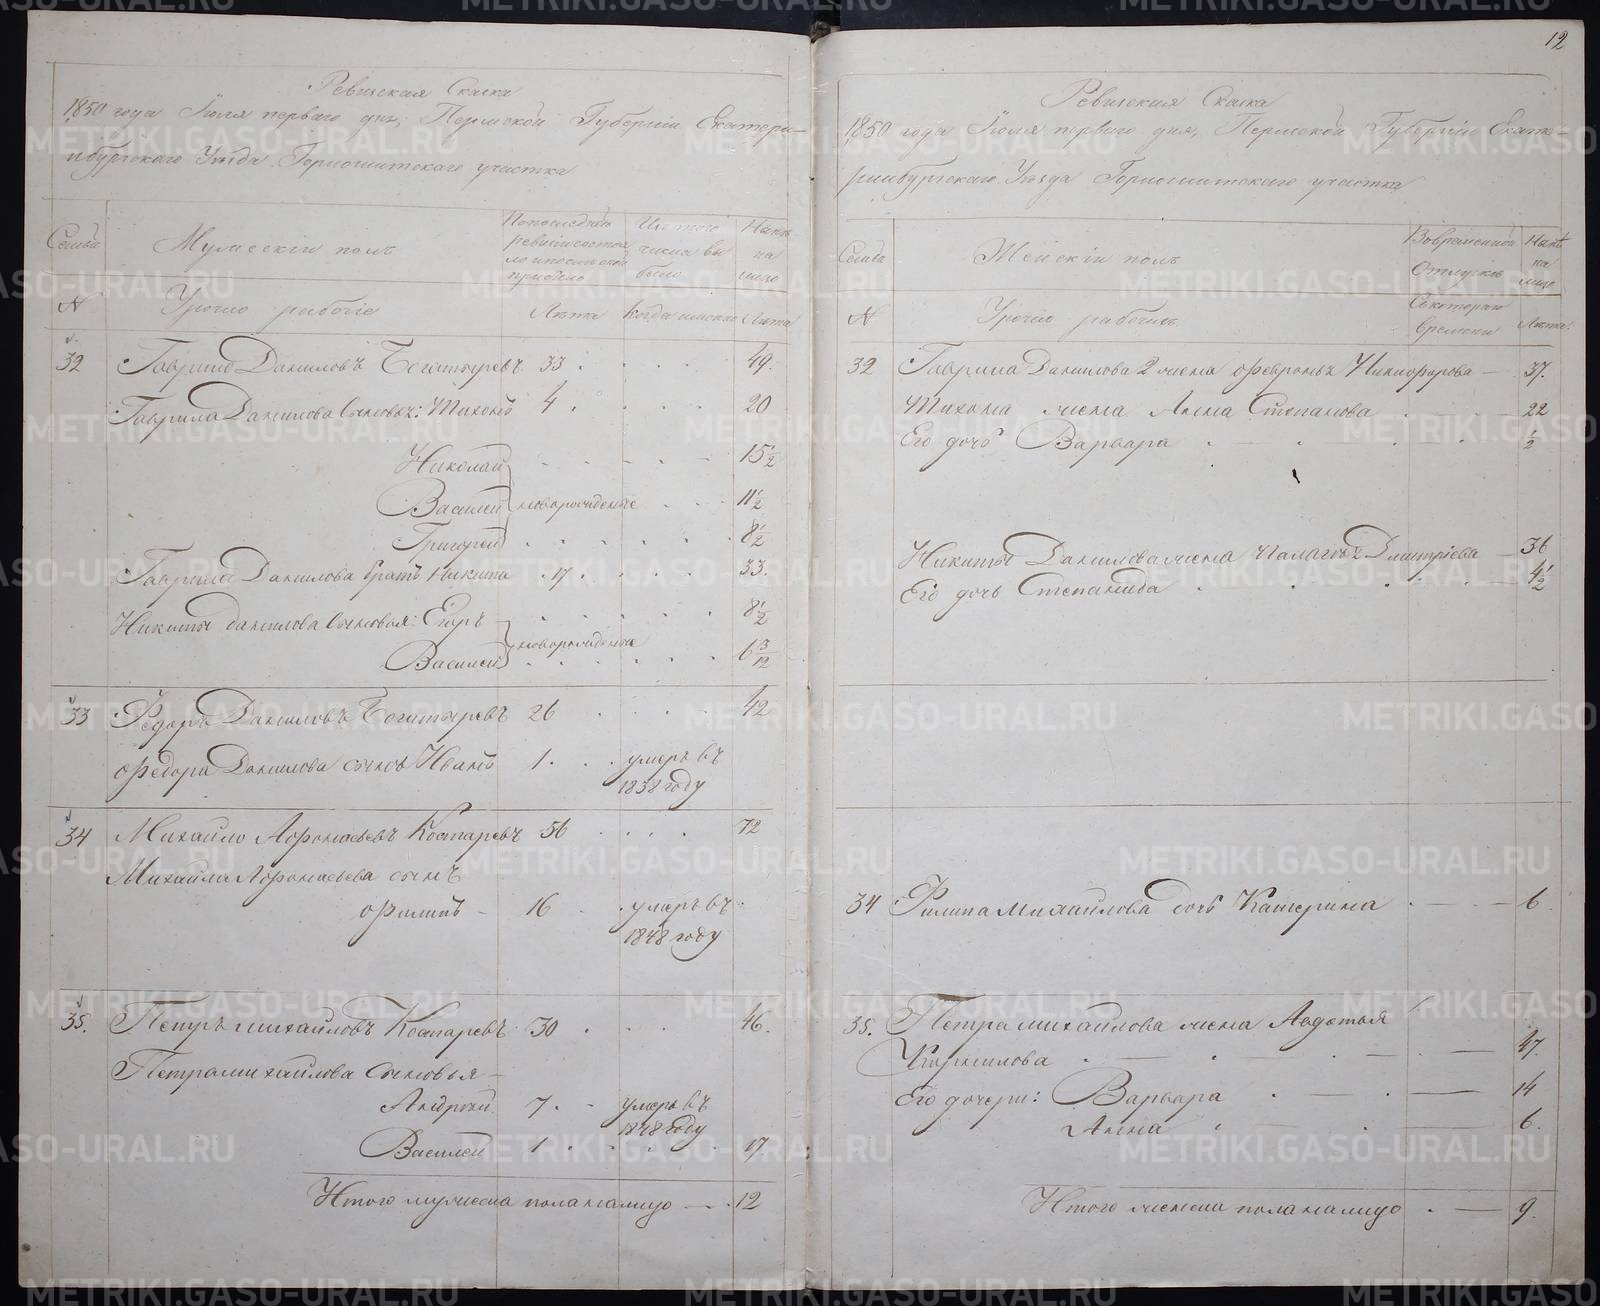 12
Ревижская Скаска
1850 года Июля перваго дня, Пермской Губернiи Екатери-
нбургскаго Уезда Горнощитскаго участка
Семьи
Мужескiй полъ
По последней
ревизiи состоя
ло и после оной
прибыло
Изъ того
числа вы
было
Ныне
на
лицо
N
Урочно рабочiе
Лета
Когда именно
Лета
32 Гаврило Даниловъ Богатыревъ 33 49.
Гаврила Данилова Сыновья: Тихонъ 4. 20
Николай 15 1/2
Василей новорожденые 11 1/2
Григорей 8 1/2
Гаврила Данилова братъ Никита 17. 33.
Никиты Данилова Сыновья: Егоръ 8 1/2
новорожденые
Василей 6 3/12
33 Федоръ Даниловъ Богатыревъ 26 42
Федора Данилова сынъ Иванъ 1. умеръ въ
1838 году
34 Михайло Афонасьевъ Костаревъ 56 72
Михайла Афонасьева сынъ
Филипъ - 16 умеръ въ
1848 году
35. Петръ Михайловъ Костаревъ 30 46.
Петра Михайлова Сыновья -
Андрей 7. умеръ въ
1848 году
Василей 1 17
Итого мужеска пола налицо — 12
Ревижская Скаска
1850 года Июля перваго дня, Пермской Губернiи Екате-
ринбургскаго Уезда Горнощитскаго участка
Семьи
Женскiй полъ
Во временной
Отлучке
Ныне
на
лицо
N
Урочно рабочихъ
Съ котораго
времени
Лета.
32 Гаврила Данилова 2 жена Февронья Никифорова — 37.
Тихона жена Анна Степанова 22
Его дочь Варвара 1/2
Никиты Данилова жена Палагея Дмитрiева 36
Его дочь Степанида 4 1/2
34 Филипа Михайлова дочь Катерина 6
35. Петра Михайлова жена Авдотья
Кирилова 47.
Его дочери: Варвара 14
Анна 6.
Итого женска пола налицо — 9.
METRIKI.GASO-URAL.RU